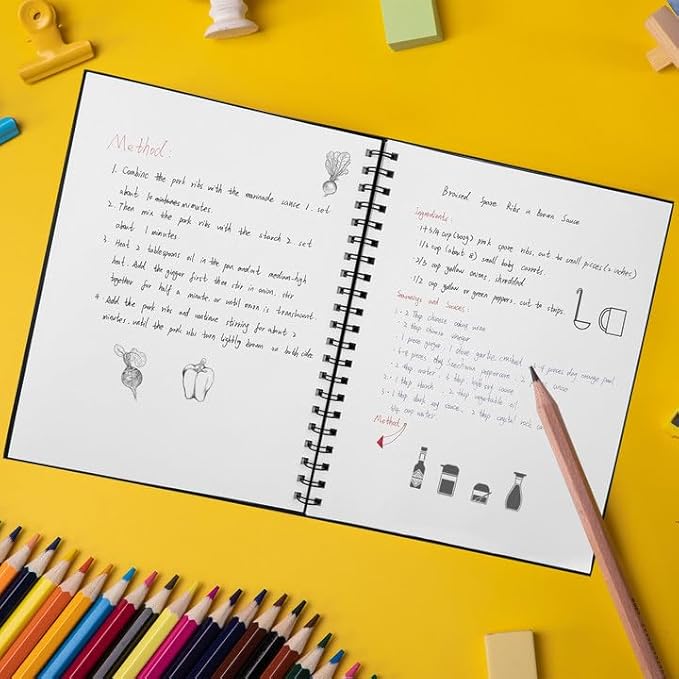 Method:
1. Combine the pork ribs with the marinade sauce 1. set
about 10 minutes.
2. Then mix the pork ribs with the starch 2 set
about 1 minutes.
3. Heat 2 tablespoons oil in the pan and wt medium-high
heat. Add the ginger first then stir in onion, stir
together for half a minute or until onion is translucent.
4. Add the pork ribs and continue stirring for about 2
minutes. until the pork ribs turn lightly brown on both sides
Braised Spare Ribs in Brown Sauce
Ingredients:
1+3/4 cup (400g) pork spare ribs, cut to small pieces (2 inches)
1/2 cup (about 8) small baby carrots.
2/3 cup yellow onions, shredded
1/2 cup yellow or green peppers, cut to strips.
Seasonings and Sauces:
2 tbsp chinese
2 tbsp chinese vinegar
1 piece ginger, 1 clove garlic crushed, pieces dry orange peel
pieces dry
2 tbsp water 1 tbsp light soy sauce
1 tbsp starch 2 tbsp vegetable oil
1 tbsp dark soy sauce. 2 tbsp
1/4 cup water
Method